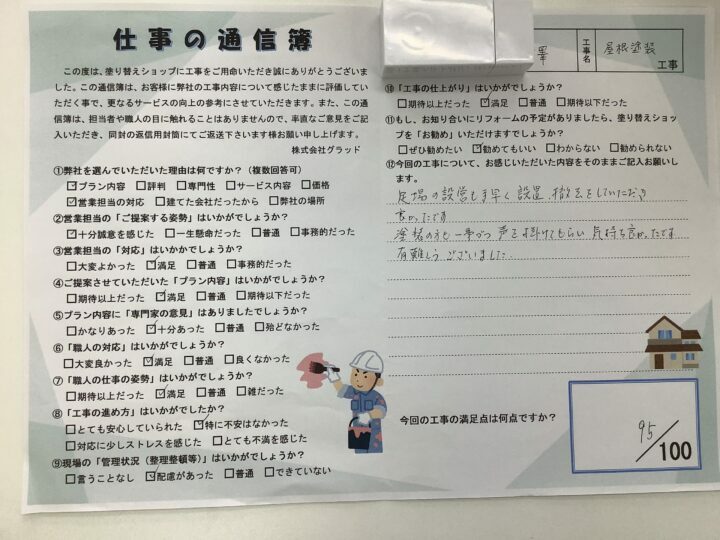 仕事の通信簿
工事名
屋根塗装
工事
この度は、塗り替えショップに工事をご用命いただき誠にありがとうございま
した。この通信簿は、お客様に弊社の工事内容について感じたままに評価してい
ただく事で、更なるサービスの向上の参考にさせていただきます。また、この通
信簿は、担当者や職人の目に触れることはありませんので、率直なご意見をご記
入いただき、同封の返信用封筒にてご返送下さいます様お願い申し上げます。
株式会社グラッド
①弊社を選んでいただいた理由は何ですか？（複数回答可）
☑プラン内容 □評判 □専門性 □サービス内容 □価格
☑営業担当の対応 □建てた会社だったから □弊社の場所
②営業担当の「ご提案する姿勢」はいかがでしょうか？
☑十分誠意を感じた □一生懸命だった □普通 □事務的だった
③営業担当の「対応」はいかかでしょうか？
□大変よかった ☑満足 □普通 □事務的だった
④ご提案させていただいた「プラン内容」はいかがでしょうか？
□期待以上だった ☑満足 □普通 □期待以下だった
⑤プラン内容に「専門家の意見」はありましたでしょうか？
□かなりあった ☑十分あった □普通 □殆どなかった
⑥「職人の対応」はいかがでしょうか？
□大変良かった ☑満足 □普通 □良くなかった
⑦「職人の仕事の姿勢」はいかがでしょうか？
□期待以上だった ☑満足 □普通 □雑だった
⑧「工事の進め方」はいかがでしたか？
□とても安心していられた ☑特に不安はなかった
□対応に少しストレスを感じた □とても不満を感じた
⑨現場の「管理状況（整理整頓等）」はいかがでしょうか？
□言うことなし ☑配慮があった □普通 □できていない
⑩「工事の仕上がり」はいかがでしょうか？
□期待以上だった ☑満足 □普通 □期待以下だった
⑪もし、お知り合いにリフォームの予定がありましたら、塗り替えショッ
プを「お勧め」いただけますでしょうか？
□ぜひ勧めたい ☑勧めてもいい □わからない □勧められない
⑫今回の工事について、お感じいただいた内容をそのままご記入お願いし
ます。
足場の設営も手早く設置、撤去をしていただき
良かったです
塗装の方も一事づつ声を掛けてもらい気持ち良かったです
有難しうございました.
今回の工事の満足点は何点ですか？
95/100